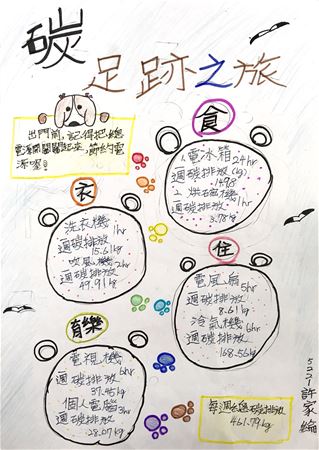 碳
足跡之旅
出門前,記得把總
電源開關關起來,節約電
源喔!
食
1.電冰箱24hr
週碳排放(kg)
14.98
2.烘碗機1hr
週碳排放
3.78kg
衣
洗衣機1hr
週碳排放
15.61kg
吹風機2hr
週碳排放
49.91kg
住
電風扇5hr
週碳排放
8.61kg
冷氣機6hr
週碳排放
168.56kg
育樂
電視機6hr
週碳排放
37.45kg
個人電腦3hr
週碳排放
28.07kg
每週總碳排放
461.79kg
52221許家綸